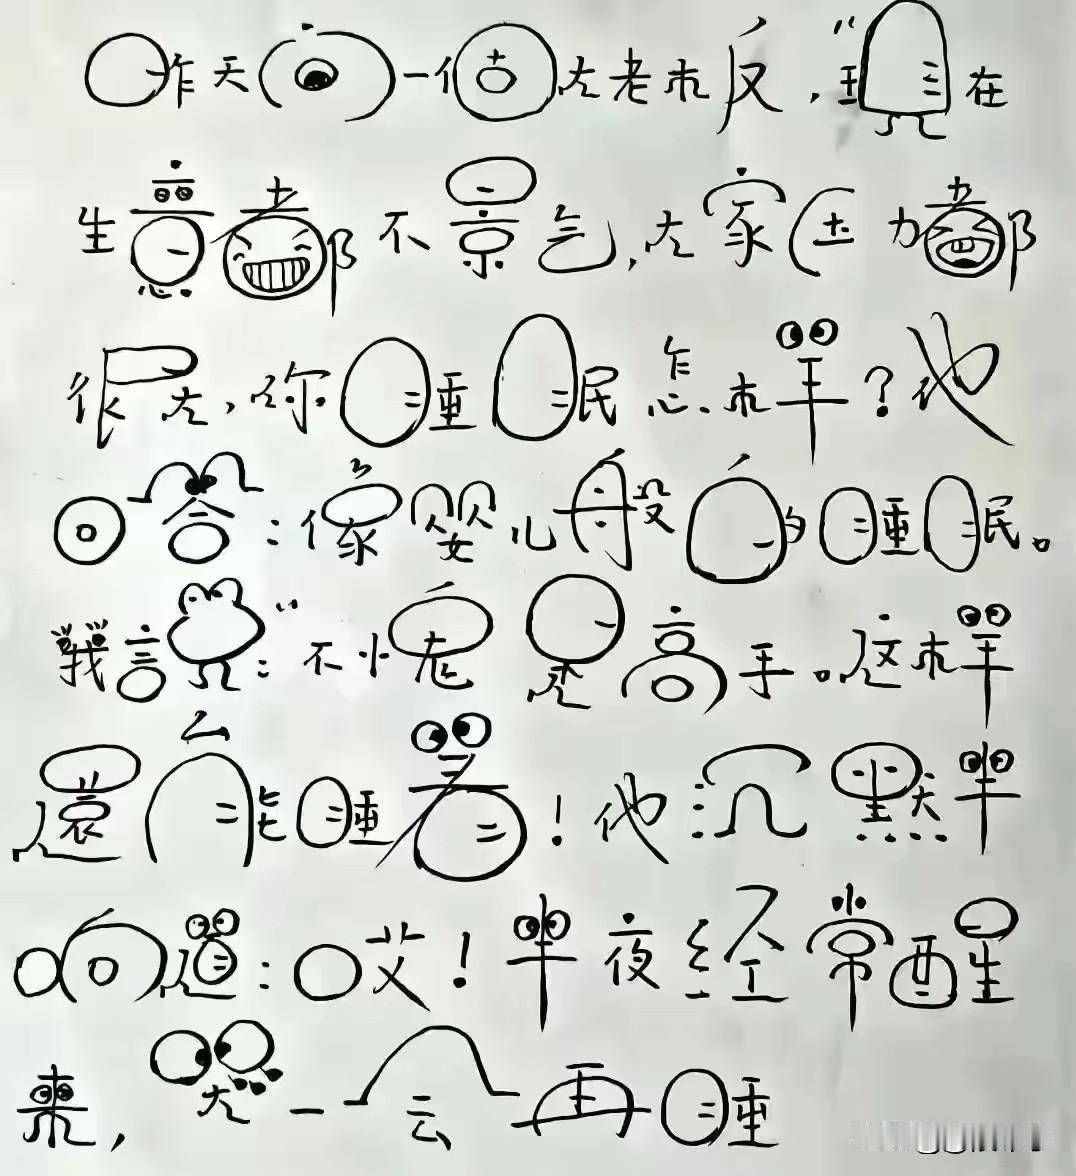 昨天问一個大老板,"現在
生意都不景气,大家压力都
很大,你睡眠怎样?他
回答:像婴儿般的睡眠。
我:"不愧是高手。这样
還能睡着!他沉默半
响道:哎!半夜经常醒
来,哭一会再睡